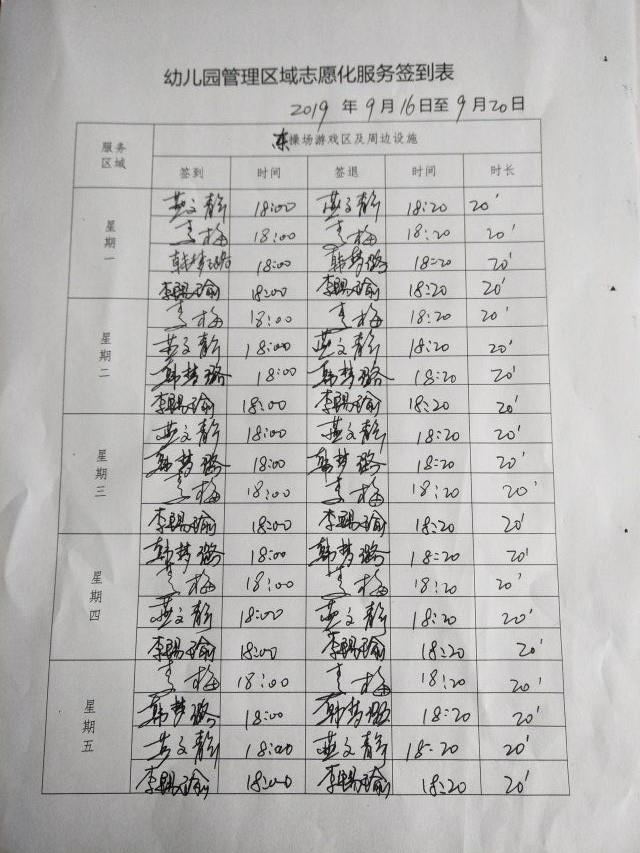 幼儿园管理区域志愿化服务签到表
2019 年 9 月 16 日至 9 月 20 日
服务区域 东操场游戏区及周边设施
签到 时间 签退 时间 时长
星期一
燕文静 18:00 燕文静 18:20 20'
李梅 18:00 李梅 18:20 20'
韩梦璐 18:00 韩梦璐 18:20 20'
李赐瑜 18:00 李赐瑜 18:20 20'
星期二
李梅 18:00 李梅 18:20 20'
燕文静 18:00 燕文静 18:20 20'
韩梦璐 18:00 韩梦璐 18:20 20'
李赐瑜 18:00 李赐瑜 18:20 20'
星期三
燕文静 18:00 燕文静 18:20 20'
韩梦璐 18:00 韩梦璐 18:20 20'
李梅 18:00 李梅 18:20 20'
李赐瑜 18:00 李赐瑜 18:20 20'
星期四
韩梦璐 18:00 韩梦璐 18:20 20'
李梅 18:00 李梅 18:20 20'
燕文静 18:00 燕文静 18:20 20'
李赐瑜 18:00 李赐瑜 18:20 20'
星期五
李梅 18:00 李梅 18:20 20'
韩梦璐 18:00 韩梦璐 18:20 20'
燕文静 18:00 燕文静 18:20 20'
李赐瑜 18:00 李赐瑜 18:20 20'